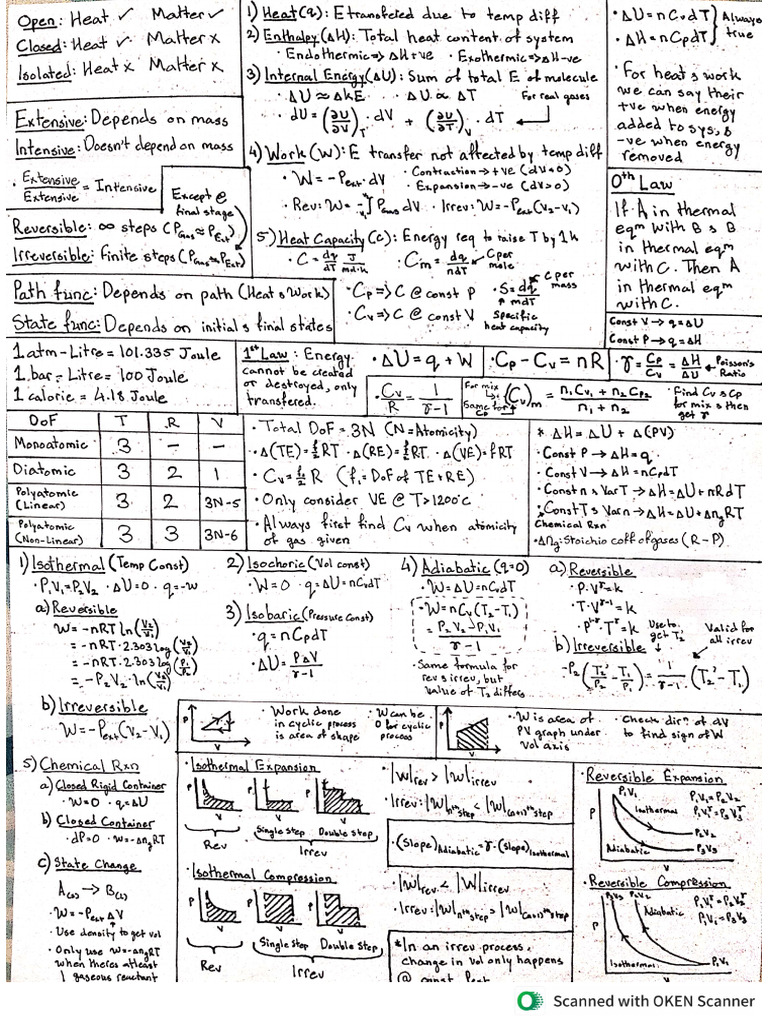 Open: Heat ✓ Matter ✓
Closed: Heat ✓ Matter x
Isolated: Heat x Matter x
Extensive: Depends on mass
Intensive: Doesn't depend on mass
· Extensive/Extensive = Intensive
Except @ final stage
Reversible: ∞ steps (PGas ≈ PExt)
Irreversible: finite steps (PGas ≠ PExt)
Path func: Depends on path (Heat & Work)
State func: Depends on initial & final states
1) Heat(q): E transfered due to temp diff
2) Enthalpy (ΔH): Total heat content of system
· Endothermic => ΔH +ve · Exothermic => ΔH -ve
3) Internal Energy (ΔU): Sum of total E of molecule
· ΔU ≈ ΔkE · ΔU ∝ ΔT For real gases
· dU = (∂U/∂V)T · dV + (∂U/∂T)V · dT
4) Work (W): E transfer not affected by temp diff
· W = -Pext · dV · Contraction → +ve (dV<0)
· Expansion → -ve (dV>0)
· Rev: W = -∫ PGas dV · Irrev: W = -Pext (V2 - V1)
5) Heat Capacity (c): Energy req to raise T by 1k
· C = dq/dT J/mol·k · Cm = dq/ndT C per mole
· Cp => C @ const P · S = dq/mdT C per mass
· Cv => C @ const V Specific heat capacity
· ΔU = nCvdT
· ΔH = nCpdT } Always true
· For heat & work
we can say their
+ve when energy
added to sys, &
-ve when energy
removed
0th Law
If A in thermal
eqm with B & B
in thermal eqm
with C. Then A
in thermal eqm
with C.
Const V → q = ΔU
Const P → q = ΔH
1 atm - Litre = 101.335 Joule
1 bar - Litre = 100 Joule
1 calorie = 4.18 Joule
1st Law: Energy
cannot be created
or destroyed, only
transfered.
· ΔU = q + W
· Cp - Cv = nR
γ = Cp/Cv = ΔH/ΔU ← Poisson's Ratio
· Cv/R = 1/γ-1
For mix Same for Cp (Cv)m = n1Cv1 + n2Cv2 / n1 + n2
· Find Cv & Cp
for mix & then
get γ
DoF T R V
Monoatomic 3 - -
Diatomic 3 2 1
Polyatomic (Linear) 3 2 3N-5
Polyatomic (Non-Linear) 3 3 3N-6
· Total DoF = 3N (N=Atomicity)
· Δ(TE) = f/2 RT · Δ(RE) = f/2 RT · Δ(VE) = f RT
· Cv = f/2 R (f: DoF of TE + RE)
· Only consider VE @ T > 1200°c
· Always first find Cv when atomicity
of gas given
* ΔH = ΔU + Δ(PV)
· Const P → ΔH = q
· Const V → ΔH = nCpdT
· Const n & Var T → ΔH = ΔU + nRdT
* Const T & Var n → ΔH = ΔU + ΔngRT
Chemical Rxn
· Δng: Stoichio coff of gases (R - P)
1) Isothermal (Temp Const)
· P1V1 = P2V2 · ΔU = 0 · q = -w
a) Reversible
W = -nRT ln(V2/V1)
= -nRT · 2.303 log(V2/V1)
= -nRT · 2.303 log(P1/P2)
= -P2V2 · ln(V2/V1)
b) Irreversible
W = -Pext (V2 - V1)
2) Isochoric (Vol const)
· W = 0 · q = ΔU = nCvdT
3) Isobaric (Pressure Const)
· q = nCpdT
· ΔU = PΔV/γ-1
4) Adiabatic (q=0)
· W = ΔU = nCvdT
· W = nCv(T2 - T1)
= P2V2 - P1V1 / γ-1
· Same formula for
rev & irrev, but
value of T2 differs
a) Reversible
· P·V^γ = k
· T·V^γ-1 = k
· P^1-γ · T^γ = k
Use to get T2'
Valid for all irrev
b) Irreversible
-P2 (T2'/P2 - T1/P1) = 1/γ-1 (T2' - T1)
P V
· Work done
in cyclic process
is area of shape
· W can be
0 for cyclic
process
P V
· W is area of
PV graph under
vol axis
· Check dirn of dV
to find sign of W
5) Chemical Rxn
a) Closed Rigid Container
· W = 0 · q = ΔU
b) Closed Container
· dP = 0 · w = -ΔngRT
c) State Change
A(s) → B(l)
· W = -Pext ΔV
· Use density to get vol
· Only use w = -ΔngRT
when theres atleast
1 gaseous reactant
· Isothermal Expansion
Rev Single step Double step
Irrev
· Isothermal Compression
Rev Single step Double step
Irrev
· |W|rev > |W|irrev
· Irrev: |W|nth step < |W|(n+1)th step
· (Slope)Adiabatic = γ · (Slope)Isothermal
· |W|rev < |W|irrev
· Irrev: |W|nth step > |W|(n+1)th step
* In an irrev process,
change in vol only happens
@ const Pext
· Reversible Expansion
P P1V1 P1V1 = P2V2
Isothermal P1V1^γ = P3V3^γ
P2V2
Adiabatic P3V3
V
· Reversible Compression
Adiabatic
P1V1 = P3V3
P Isothermal P1V1
V
Scanned with OKEN Scanner